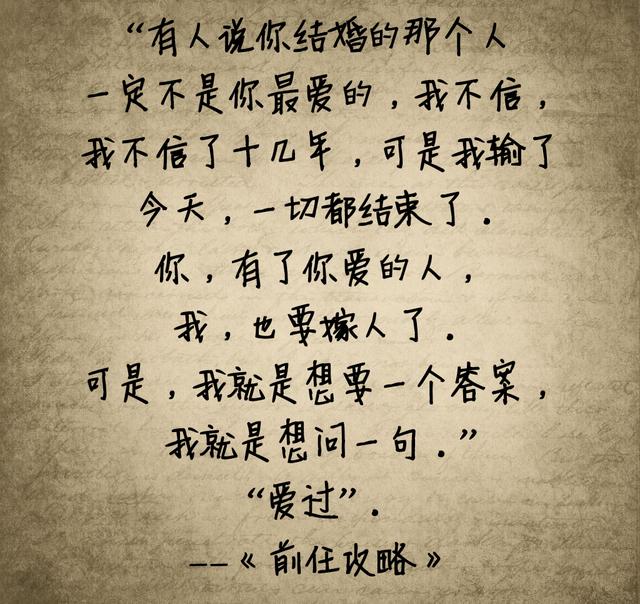 “有人说你结婚的那个人
一定不是你最爱的，我不信，
我不信了十几年，可是我输了
今天，一切都结束了．
你，有了你爱的人，
我，也要嫁人了．
可是，我就是想要一个答案，
我就是想问一句．”
“爱过”．
--《前任攻略》